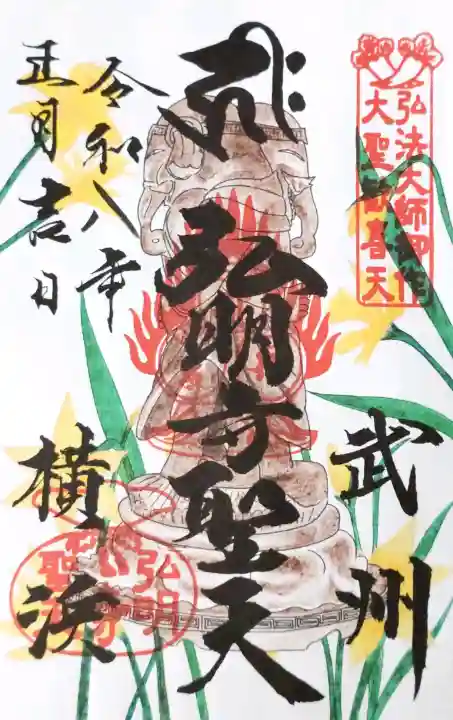 弘法大師御作
大聖歓喜天
武州
弘明寺聖天
横浜
令和八年
正月吉日
弘明